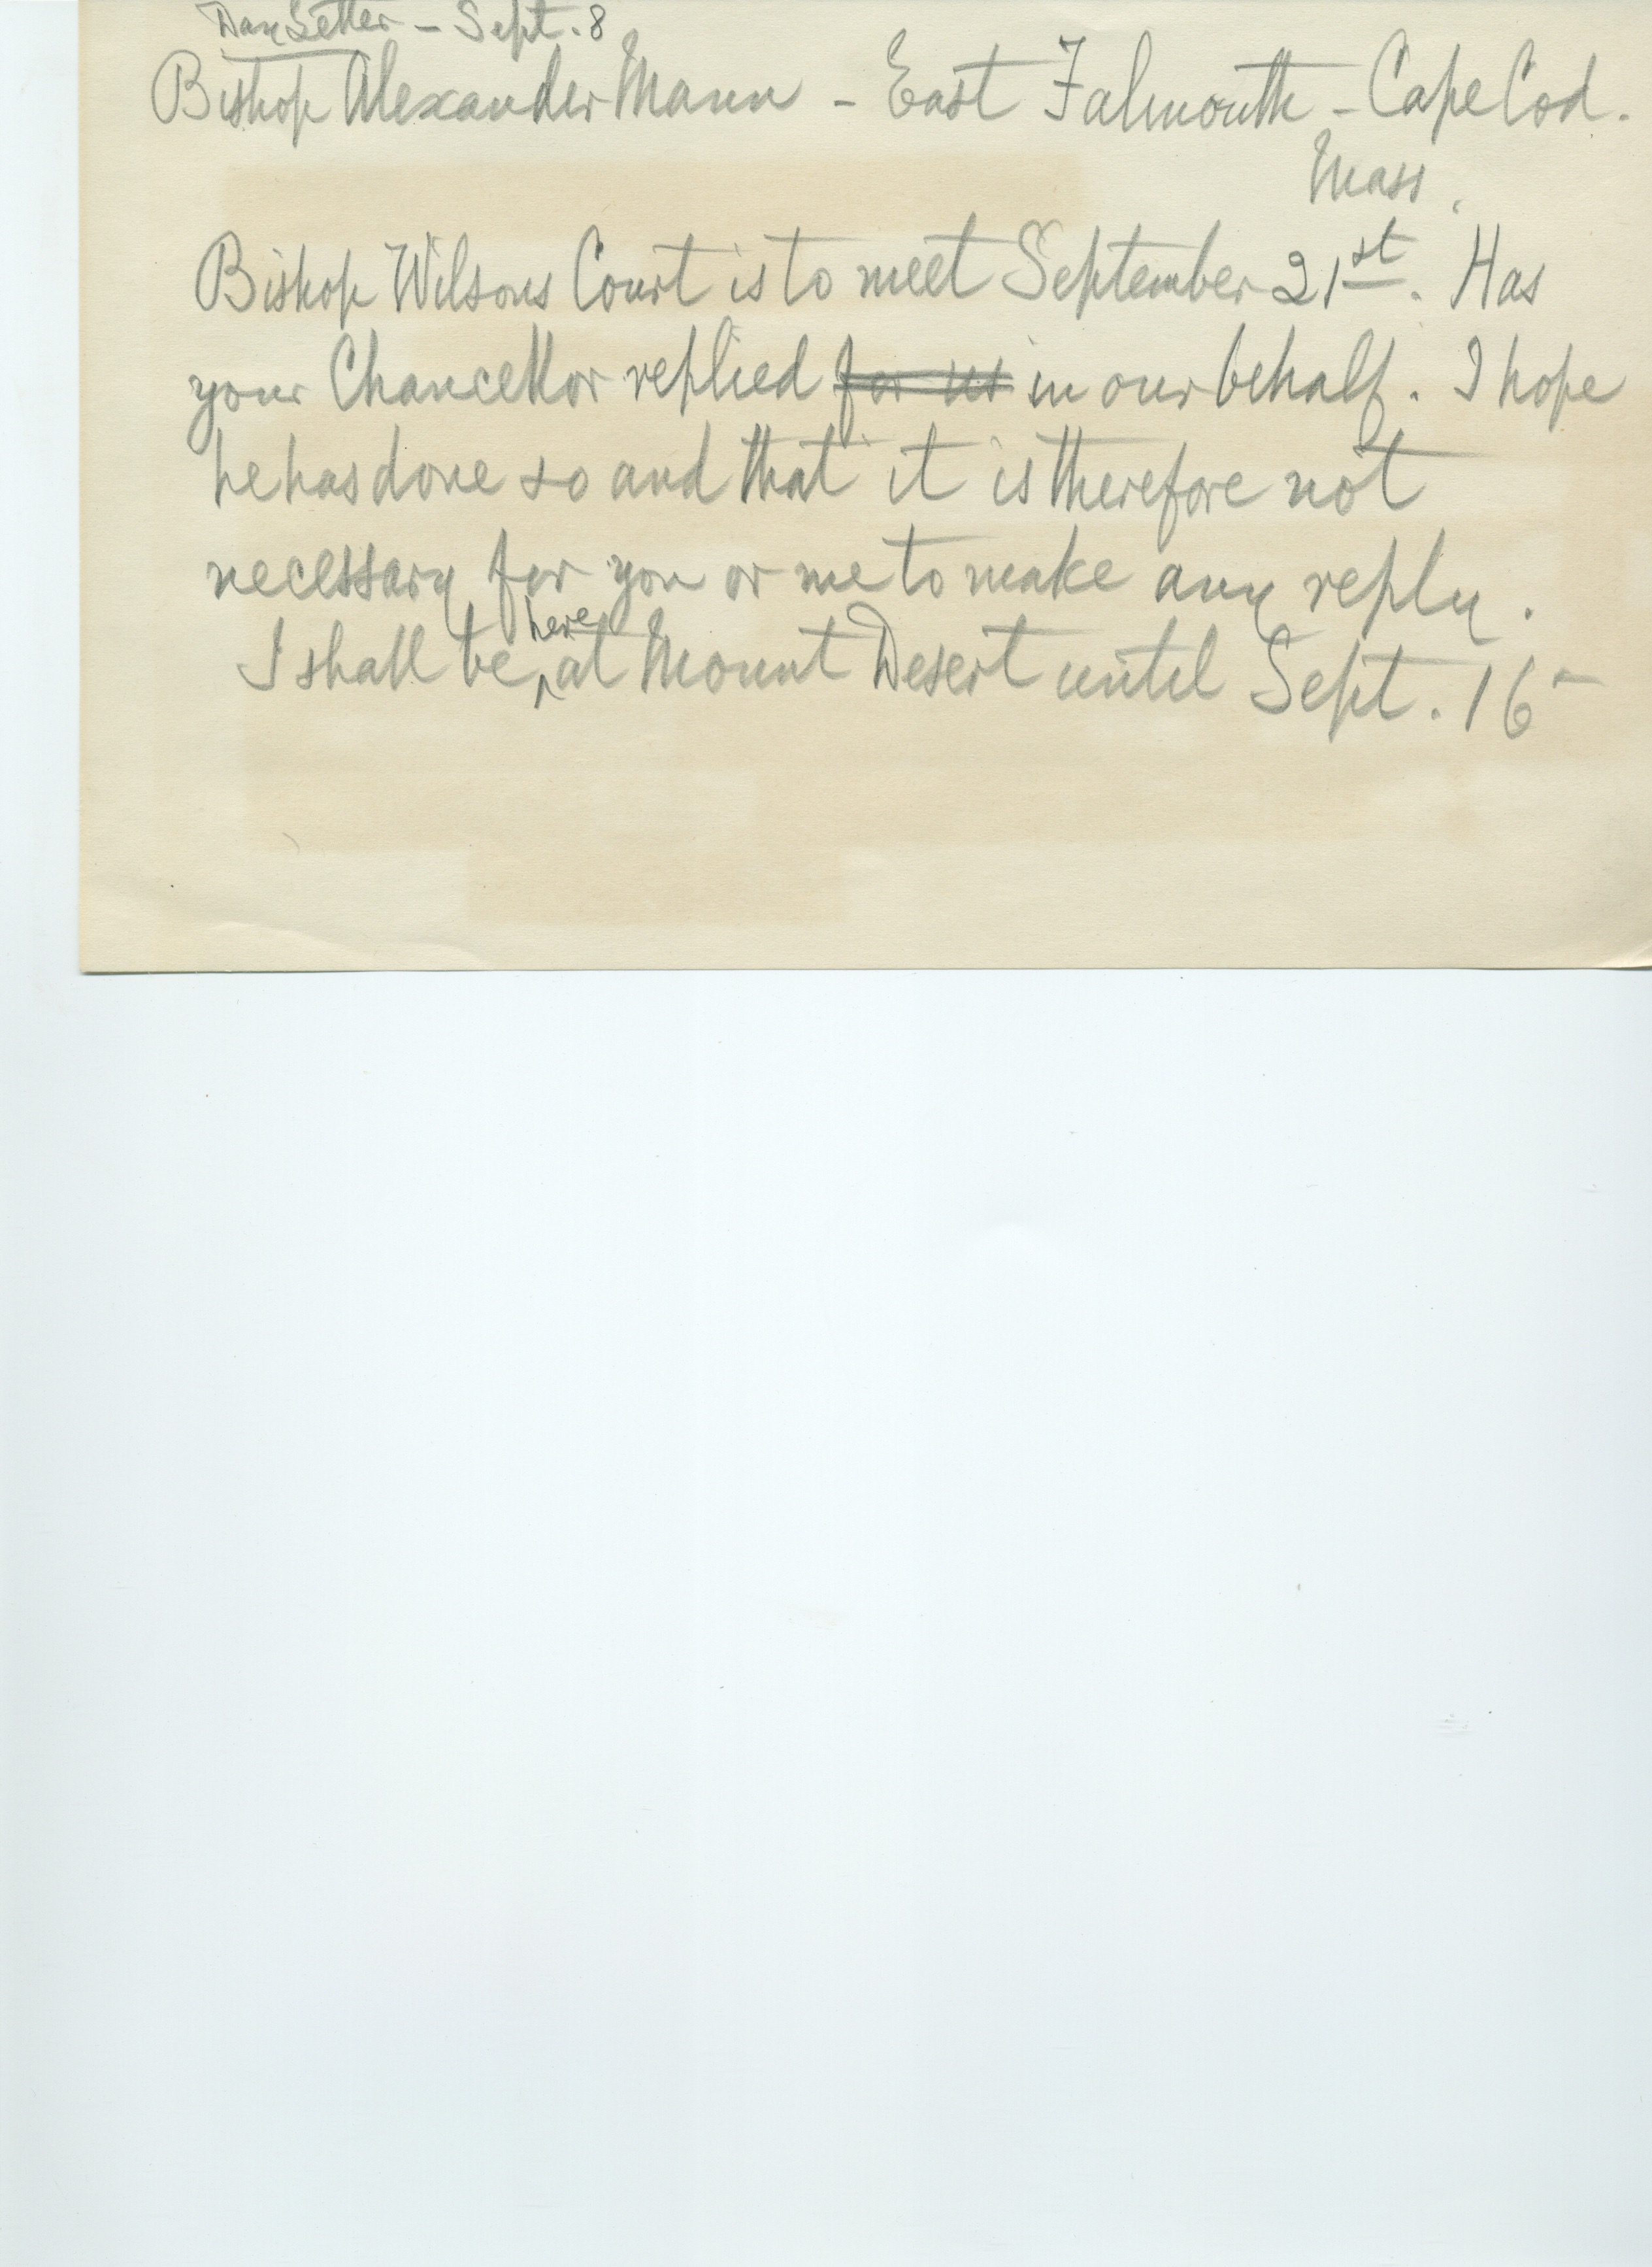 Day Letter - Sept. 8
Bishop Alexander Mann - East Falmouth - Cape Cod.
Mass.
Bishop Wilsons Court is to meet September 21st. Has
your Chancellor replied for us in our behalf. I hope
he has done so and that it is therefore not
necessary for you or me to make any reply.
I shall be here at Mount Desert until Sept. 16